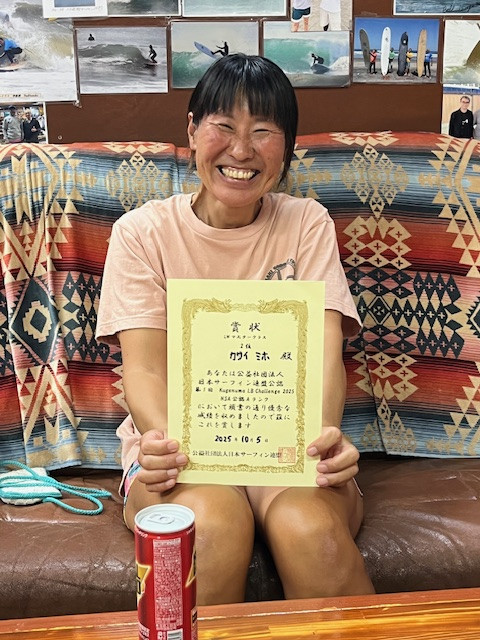 賞状
2位
カサイ ミホ 殿
あなたは公益社団法人
日本サーフィン連盟公認
Kugenuma LB Challenge 2025
NSA公認Aランク
において頭書の通り優秀な
成績を収めましたので茲に
これを賞します
2025年10月5日
公益社団法人日本サーフィン連盟